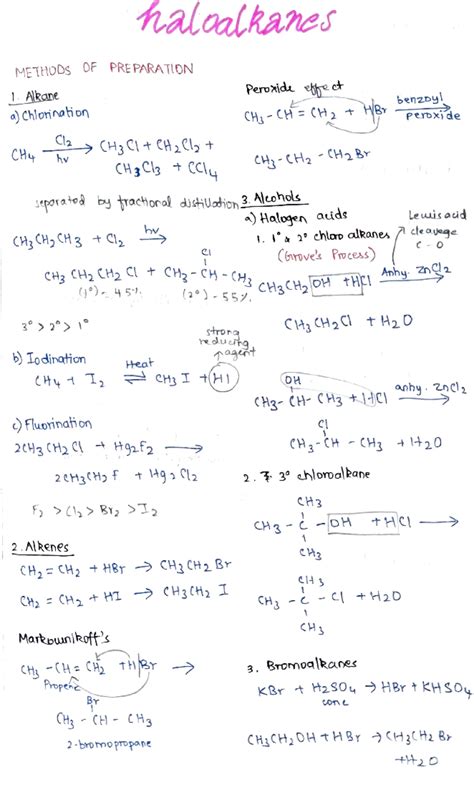 haloalkanes
METHODS OF PREPARATION
1. Alkane
a) Chlorination
CH4 Cl2 hv → CH3Cl + CH2Cl2 +
CH3Cl3 + CCl4
separated by fractional distillation
CH3CH2CH3 + Cl2 hv →
Cl
CH3CH2CH2Cl + CH3-CH-CH3
(1°) - 45% (2°) - 55%
3° > 2° > 1°
strong
reducing
agent
b) Iodination
CH4 + I2 Heat ⇌ CH3I + HI
c) Fluorination
2CH3CH2Cl + Hg2F2 →
2CH3CH2F + Hg2Cl2
F2 > Cl2 > Br2 > I2
2. Alkenes
CH2=CH2 + HBr → CH3CH2Br
CH2=CH2 + HI → CH3CH2I
Markownikoff's
CH3-CH=CH2 + H|Br →
Propene
Br
CH3-CH-CH3
2-bromopropane
Peroxide effect
CH3-CH=CH2 + H|Br benzoyl peroxide →
CH3-CH2-CH2Br
3. Alcohols
a) Halogen acids
1. 1° & 2° chloroalkanes
(Grove's Process)
Lewis acid
cleavage
C-O
CH3CH2OH + HCl Anhy. ZnCl2 →
CH3CH2Cl + H2O
OH
CH3-CH-CH3 + HCl anhy. ZnCl2 →
Cl
CH3-CH-CH3 + H2O
2. 3° chloroalkane
CH3
CH3-C-OH + HCl →
CH3
CH3
CH3-C-Cl + H2O
CH3
3. Bromoalkanes
KBr + H2SO4 → HBr + KHSO4
conc
CH3CH2OH + HBr → CH3CH2Br
+ H2O